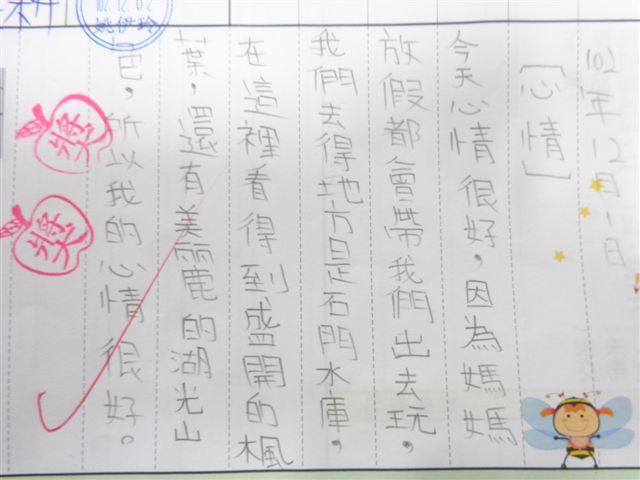 102年12月1日
[心情]
今天心情很好，因為媽媽
放假都會帶我們出去玩，
我們去得地方是石門水庫，
在這裡看得到盛開的楓
葉，還有美麗的湖光山
色，所以我的心情很好。
102.12.02
姚伊玲
獎
獎